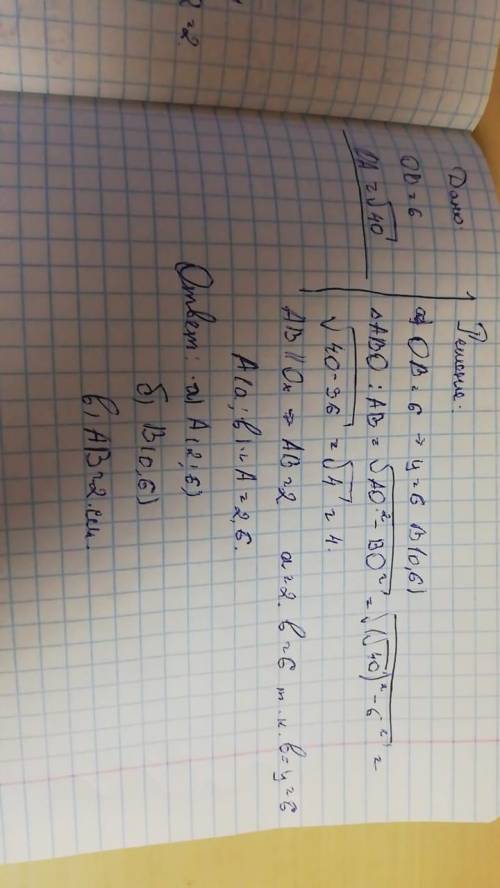 2 = 2
Дано:
OB = 6
OA = √40
Решение.
а) OB = 6 → y = 6 B(0,6)
△ABO: AB = √AO² - BO² = √(√40)² - 6² =
√40-36 = √4 = 4.
AB || Ox ⇒ AB = 2 a = 2. b = 6 т.к. b = y = 6
A(a; b) ∴ A = 2,6.
Ответ: а) A(2;6)
б) B(0,6)
в) AB = 2 см.